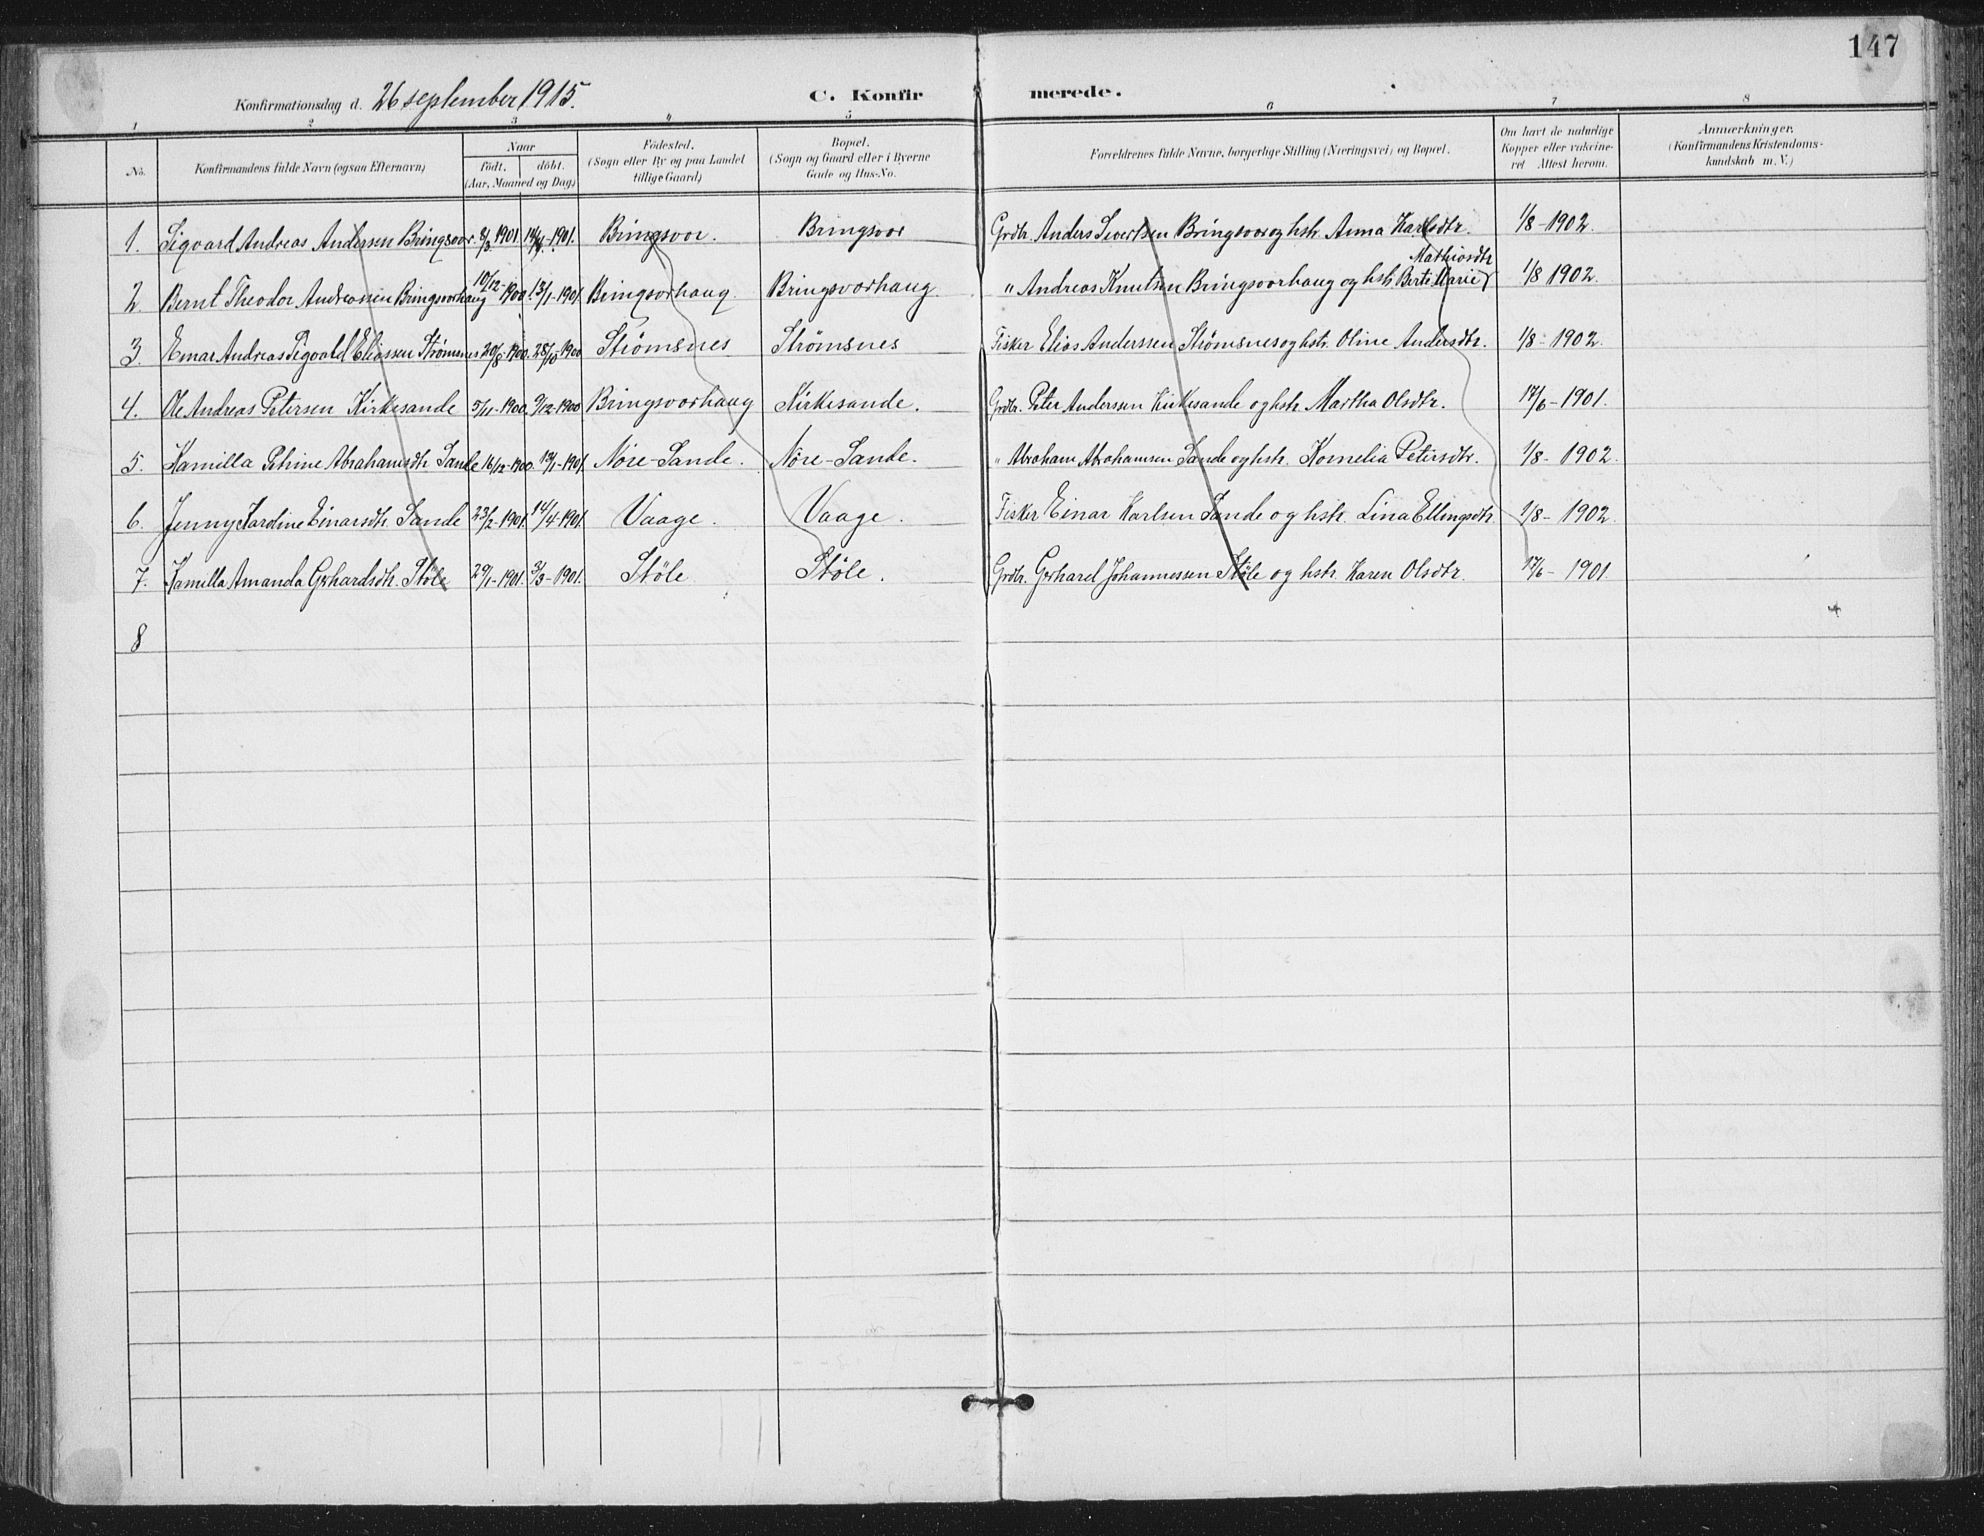 147
Konfirmationsdag d. 26 september 1915. C. Konfirmerede.
1 2 3 4 5 6 7 8
No. Konfirmandens fulde Navn (ogsaa Efternavn) Naar Födt. döbt. (Aar, Maaned og Dag) Födested. (Sogn eller By og paa Landet tillige Gaard) Bopæl. (Sogn og Gaard eller i Byerne Gade og Hus-No. Forældrenes fulde Navne, borgerlige Stilling (Næringsvei) og Bopæl. Om havt de naturlige Kopper eller vakcineret Attest herom. Anmærkninger. (Konfirmandens Kristendomskundskab m. V.)
1. Sigvard Andreas Andersen Bringsvor. 8/3 1901. 14/4-1901. Bringsvor. Bringsvor Grdbr. Anders Sivertsen Bringsvor og hstr. Anna Karlsdtr. 1/8-1902.
2. Bernt Theodor Andreassen Bringsvorhaug 10/12-1900. 13/1-1901. Bringsvorhaug. Bringsvorhaug. " Andreas Knutsen Bringsvorhaug og hstr Berte Marie Mathiasdtr 1/8 1902.
3. Einar Andreas Sigvald Eliassen Strømsnes 20/8-1900. 28/10-1900 Strømsnes Strømsnes Fisker Elias Anderssen Strømsnes og hstr. Oline Andersdtr. 1/8-1902.
4. Ole Andreas Petersen Kirkesande 5/11-1900. 9/12-1900 Bringsvorhaug Kirkesande. Grdbr. Peter Anderssen Kirkesande og hstr. Martha Olsdtr. 17/6-1901.
5. Kamilla Petrine Abrahamsdtr. Sande 16/12-1900. 13/1-1901. Nöre-Sande. Nöre-Sande. " Abraham Abrahamsen Sande og hstr. Kornelia Petersdtr. 1/8-1902.
6. Jenny Karoline Einarsdtr. Sande 23/2-1901. 14/4-1901. Vaage. Vaage. Fisker Einar Karlsen Sande og hstr. Lina Ellingsdtr. 1/8-1902.
7. Kamilla Amanda Gerhardsdtr. Støle 29/1-1901. 3/3-1901. Støle Støle. Grdbr. Gerhard Johannessen Støle og hstr. Karen Olsdtr. 17/6-1901.
8